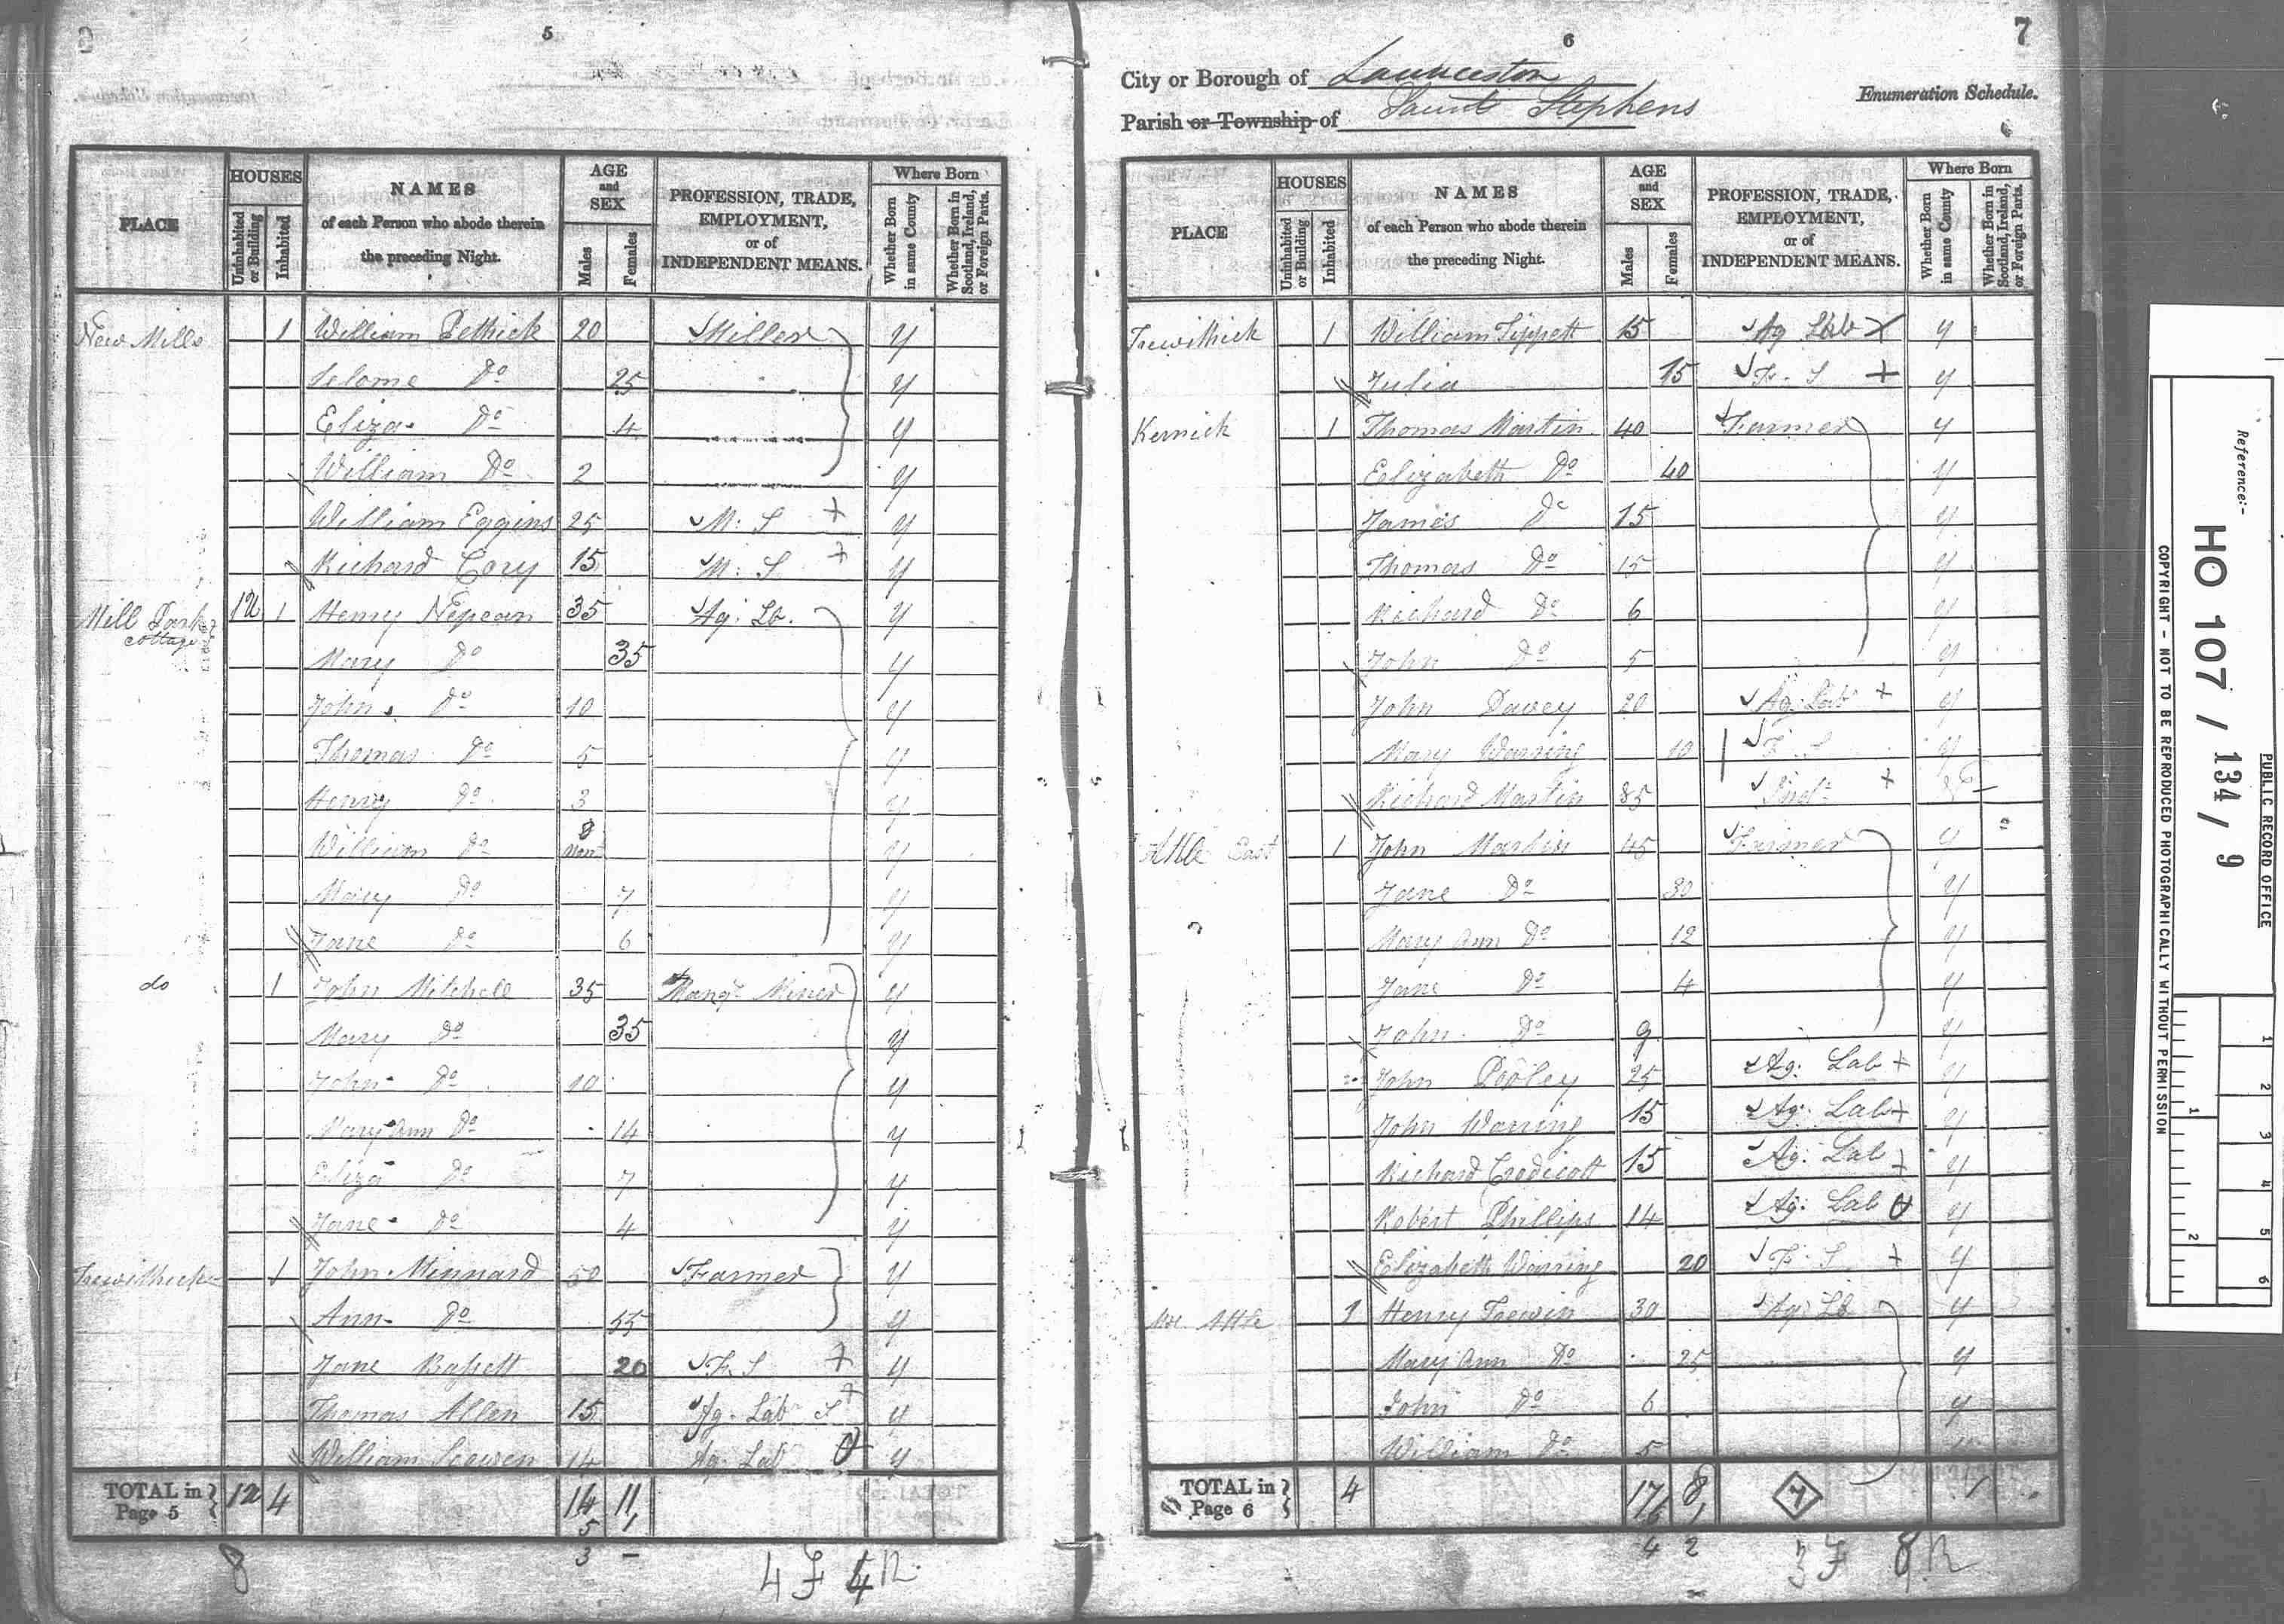 5
PLACE
HOUSES
Uninhabited or Building
Inhabited
NAMES
of each Person who abode therein
the preceding Night.
AGE
and
SEX
Males
Females
PROFESSION, TRADE,
EMPLOYMENT,
or of
INDEPENDENT MEANS.
Where Born
Whether Born in same County
Whether Born in Scotland, Ireland, or Foreign Parts.
New Mills 1 William Pethick 20 Miller y
Selome Do 25 y
Eliza Do 4 y
William Do 2 y
William Eggins 25 M: S y
Richard Cory 15 M: S y
Mill Park cottage 1u 1 Henry Nepean 35 Ag: Lb. y
Mary Do 35 y
John Do 10 y
Thomas Do 5 y
Henry Do 3 y
William Do 8 Mon y
Mary Do 7 y
Jane Do 6 y
do 1 John Mitchell 35 Mangr Miner y
Mary Do 35 y
John Do 10 y
Mary Ann Do 14 y
Eliza Do 7 y
Jane Do 4 y
Trewithick 1 John Minnard 50 Farmer y
Ann Do 55 y
Jane 20 F. S y
Thomas Allen 15 Ag. Lab y
William 14 Ag. Lab y
TOTAL in Page 5 1u 4 14 11
5 1
3 –
8 4 F 4 R
6
7
City or Borough of Launceston
Parish or Township of Saint Stephens
Enumeration Schedule.
PLACE
HOUSES
Uninhabited or Building
Inhabited
NAMES
of each Person who abode therein
the preceding Night.
AGE
and
SEX
Males
Females
PROFESSION, TRADE,
EMPLOYMENT,
or of
INDEPENDENT MEANS.
Where Born
Whether Born in same County
Whether Born in Scotland, Ireland, or Foreign Parts.
Trewithick 1 William Tippett 15 Ag Lab y
Julia 15 F. S y
Kernick 1 Thomas Martin 40 Farmer y
Elizabeth Do 40 y
James Do 15 y
Thomas Do 15 y
Richard Do 6 y
John Do 5 y
John Davey 20 Ag. Lab y
Mary Warring 10 F. S y
Richard Martin 85 Ind
East 1 John Martin 45 Farmer y
Jane Do 30 y
Mary Ann Do 12 y
Jane Do 4 y
John Do 9 y
John Pooley 25 Ag: Lab y
John Warring 15 Ag: Lab y
Richard Crodicott 15 Ag: Lab y
Robert Phillips 14 Ag: Lab y
Elizabeth Warring 20 F. S y
1 Henry 30 Ag: Lb y
Mary Ann Do 25 y
John Do 6 y
William Do 5
TOTAL in Page 6 4 17 8
4 2
3 F 8 R
Reference:-
HO 107 / 134 / 9
PUBLIC RECORD OFFICE
COPYRIGHT - NOT TO BE REPRODUCED PHOTOGRAPHICALLY WITHOUT PERMISSION
1
2
3
4
5
6
1
2